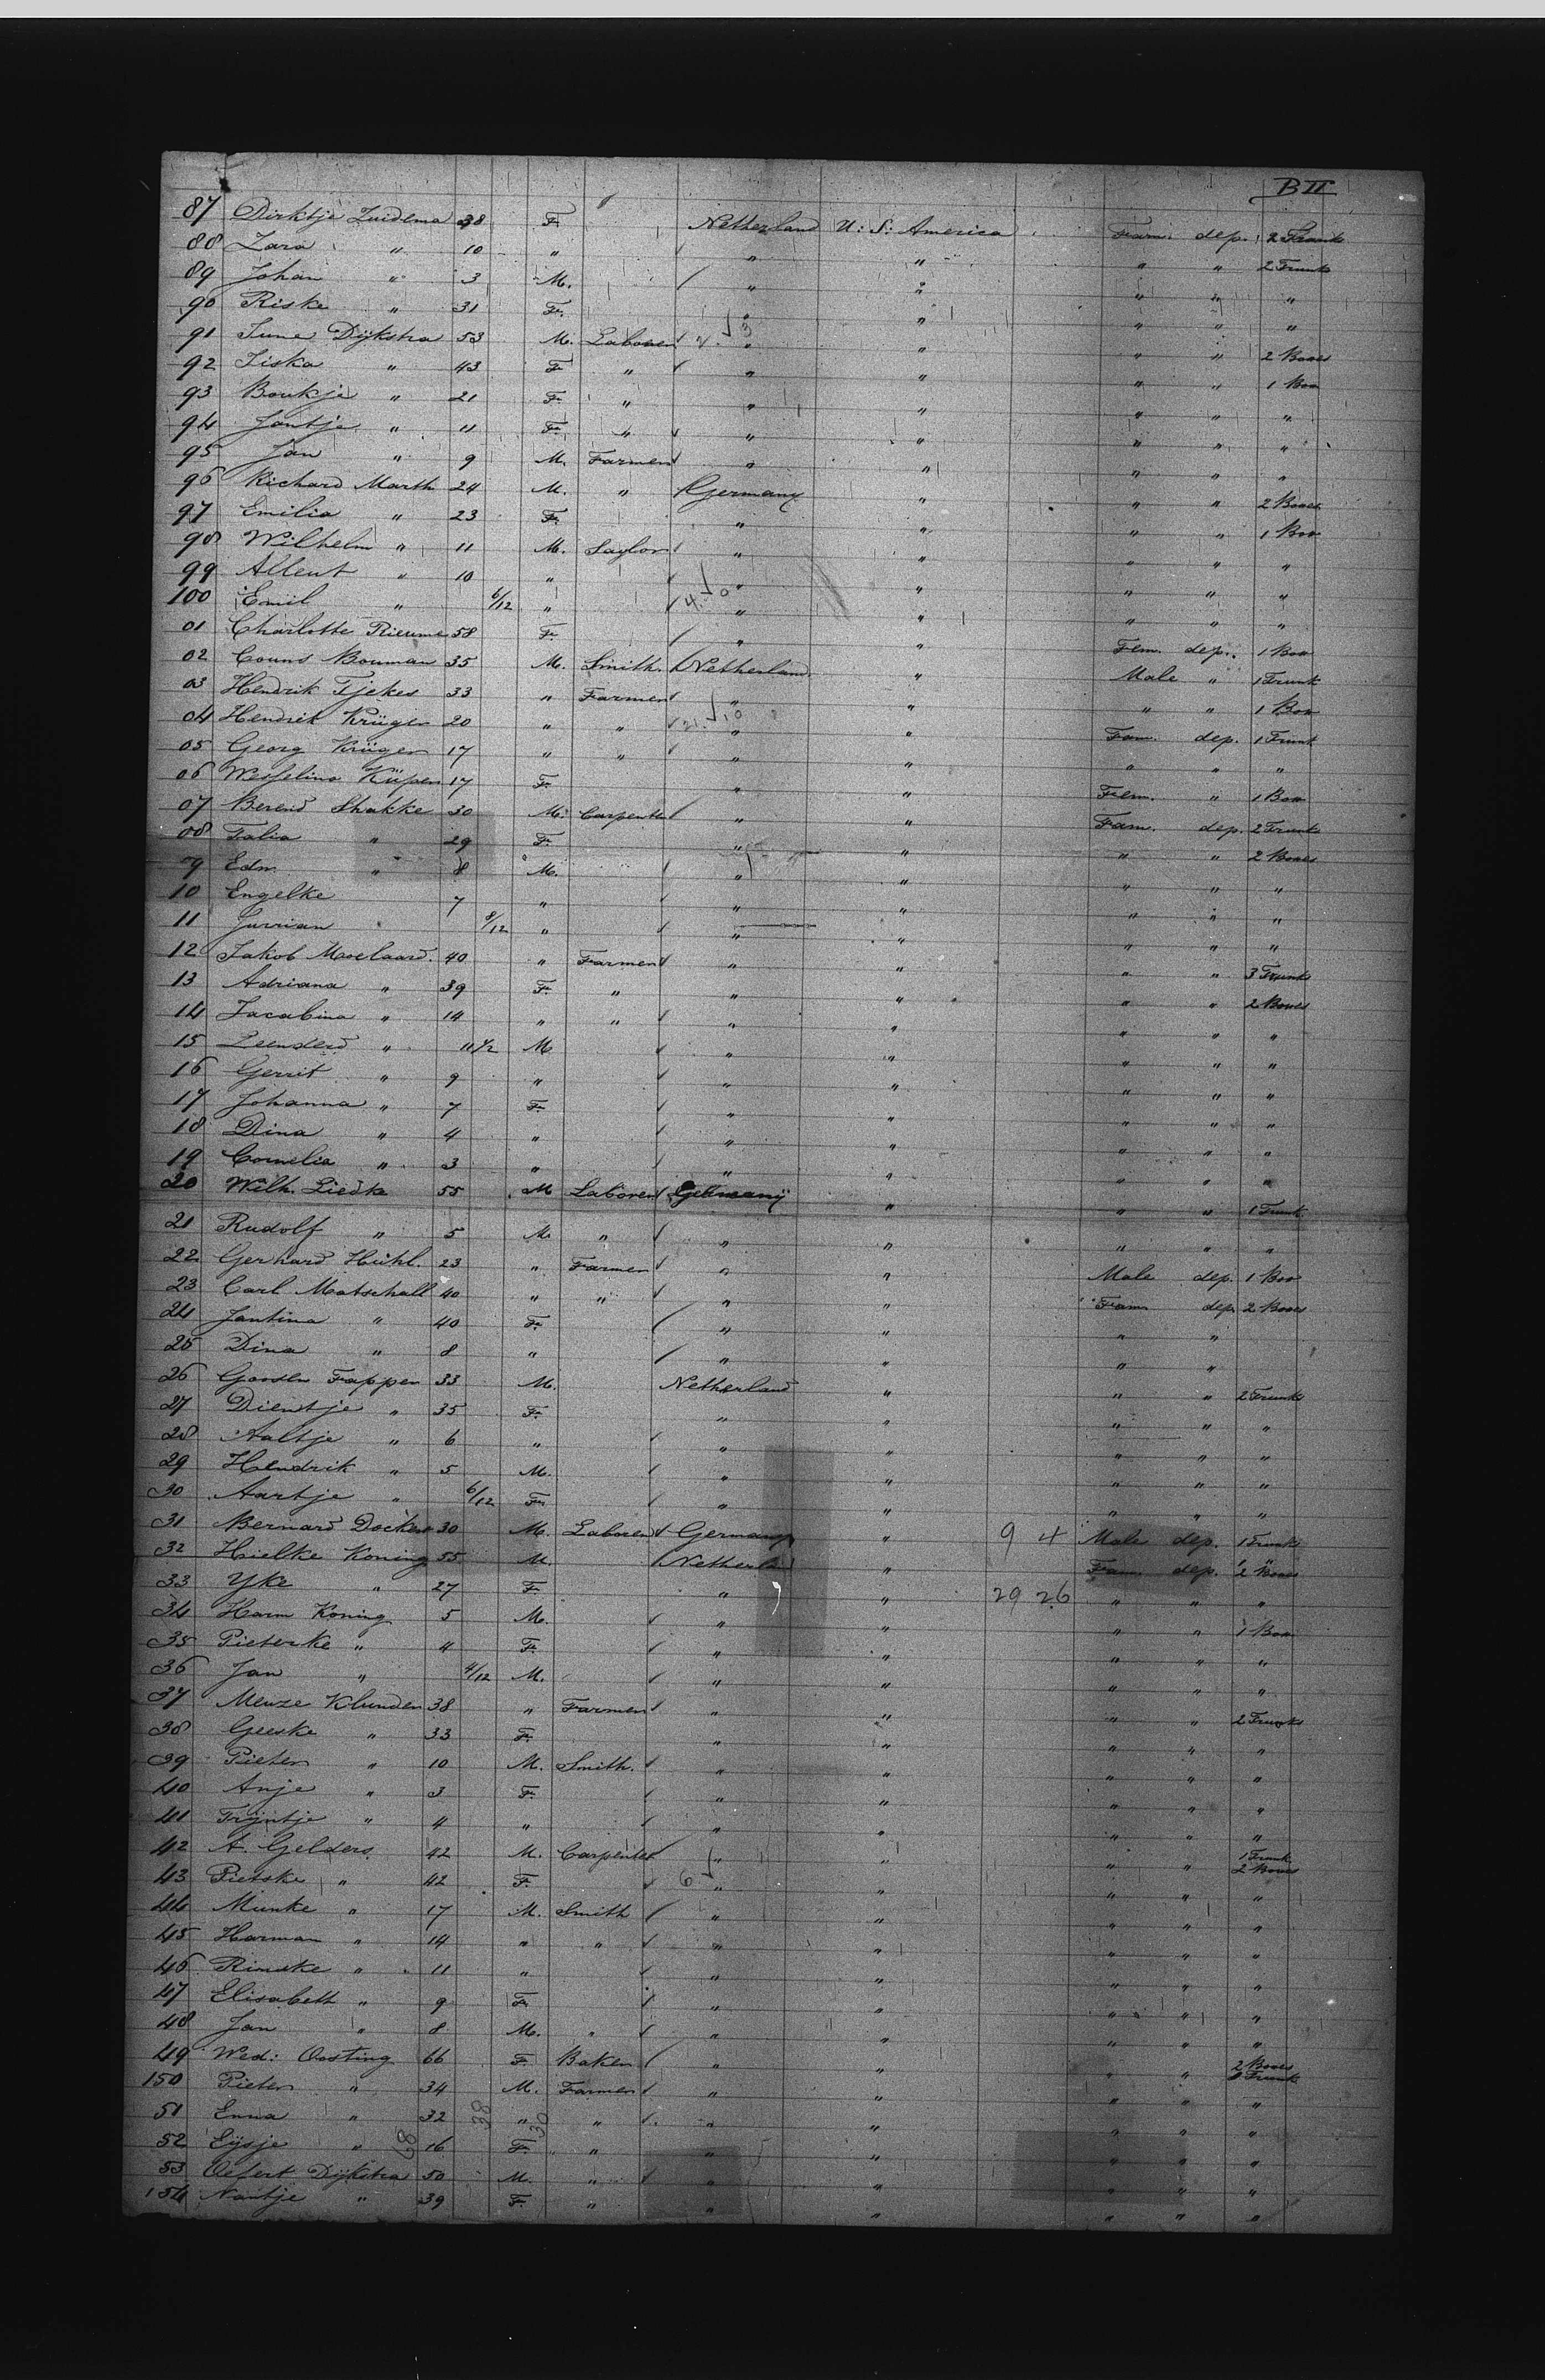 B II
87 Dirktje Zuidema 38 F. Netherland U: S: America Fam. dep. 2 Trunk
88 Zara " 10 " " " " " 2 Trunk
89 Johan " 3 M. " " " " "
90 Riske " 31 F. " " " " "
91 Dijkstra 53 M. Labourer " " " " 2 Boxes
92 " 43 F " " " " " 1 Box
93 Boukje " 21 F. " " " " " "
94 Jantje " 11 F. " " " " " "
95 Jan " 9 M. Farmer " " " " "
96 Richard Marth 24 M. " Germany " " " 2 Boxes
97 Emilia " 23 F. " " " " 1 Box
98 Wilhelm " 11 M. Saylor " " " " "
99 " 10 " " " " " "
100 Emil " 6/12 " " " " " "
01 Charlotte 58 F. " " Fem. dep. 1 Box
02 Bouman 35 M. Smith. Netherland " Male " 1 Trunk
03 Hendrik Tjekes 33 " Farmer " " " " 1 Box
04 Hendrik Krüger 20 " " " " Fam. dep. 1 Trunk
05 Georg Krüger 17 " " " " " " "
06 Wesselina Küper 17 F. " " Fem. " 1 Box
07 Berend Shakke 30 M. Carpenter " " Fam. dep. 2 Trunk
08 Talia " 29 F. " " " " 2 Boxes
9 Edw. " 8 M. " " " " "
10 Engelke 7 " " " " " "
11 Jurrian 8/12 " " " " " "
12 Jakob Moelaard. 40 " Farmer " " " " 3 Trunks
13 Adriana " 39 F. " " " " " 2 Boxes
14 Jacabina " 14 " " " " " " "
15 Leenderd " 11 1/2 M " " " " "
16 Gerrit " 9 " " " " " "
17 Johanna " 7 F. " " " " "
18 Dina " 4 " " " " " "
19 Cornelia " 3 " " " " " "
20 Wilh. Liedke 55 M Laborer Germany " " " 1 Trunk
21 Rudolf " 5 M. " " " " " "
22 Gerhard Hühl. 23 " Farmer " " Male dep. 1 Box
23 Carl Matschall 40 " " " " Fam dep 2 Boxes
24 Jantina " 40 F. " " " "
25 Dina " 8 " " " " "
26 Goosen Tappen 33 M. Netherland " " " 2 Trunk
27 Dientje " 35 F. " " " " "
28 Aaltje " 6 " " " " " "
29 Hendrik " 5 M. " " " " "
30 Aartje " 6/12 F. " " " " "
31 Bernard Docker 30 M. Laborer Germany " 9 4 Male dep. 1 Trunk
32 Hielke Koning 55 M. Netherland " Fam. dep. 2 Boxes
33 Yke " 27 F. " " 29 26 " " "
34 Harm Koning 5 M. " " " " 1 Box
35 Pieterke " 4 F. " " " " "
36 Jan " 4/12 M. " " " " "
37 Menze Klunder 38 " Farmer " " " " 2 Trunks
38 Geeske " 33 F. " " " " "
39 Pieter " 10 M. Smith. " " " " "
40 Anje " 3 F. " " " " "
41 Trijntje " 4 " " " " " "
42 A. Gelders. 42 M. Carpenter " " " " 1 Trunk 2 Boxes
43 Pietske " 42 F. 6 " " " " "
44 Munke " 17 M. Smith " " " " "
45 Harman " 14 " " " " " " "
46 Rinske " 11 " " " " " "
47 Elisabeth " 9 F. " " " " "
48 Jan " 8 M. " " " " " "
49 Wed: Oosting 66 F. Baker " " " " 2 Boxes Trunk
150 Pieter " 34 M. Farmer " " " " "
51 Enna " 32 38 " 30 " " " " " "
52 Eijsje " 68 16 F. " " " " " "
53 Oefert Dijkstra 50 M. " " " " " "
154 Nantje " 39 F. " " " " " "